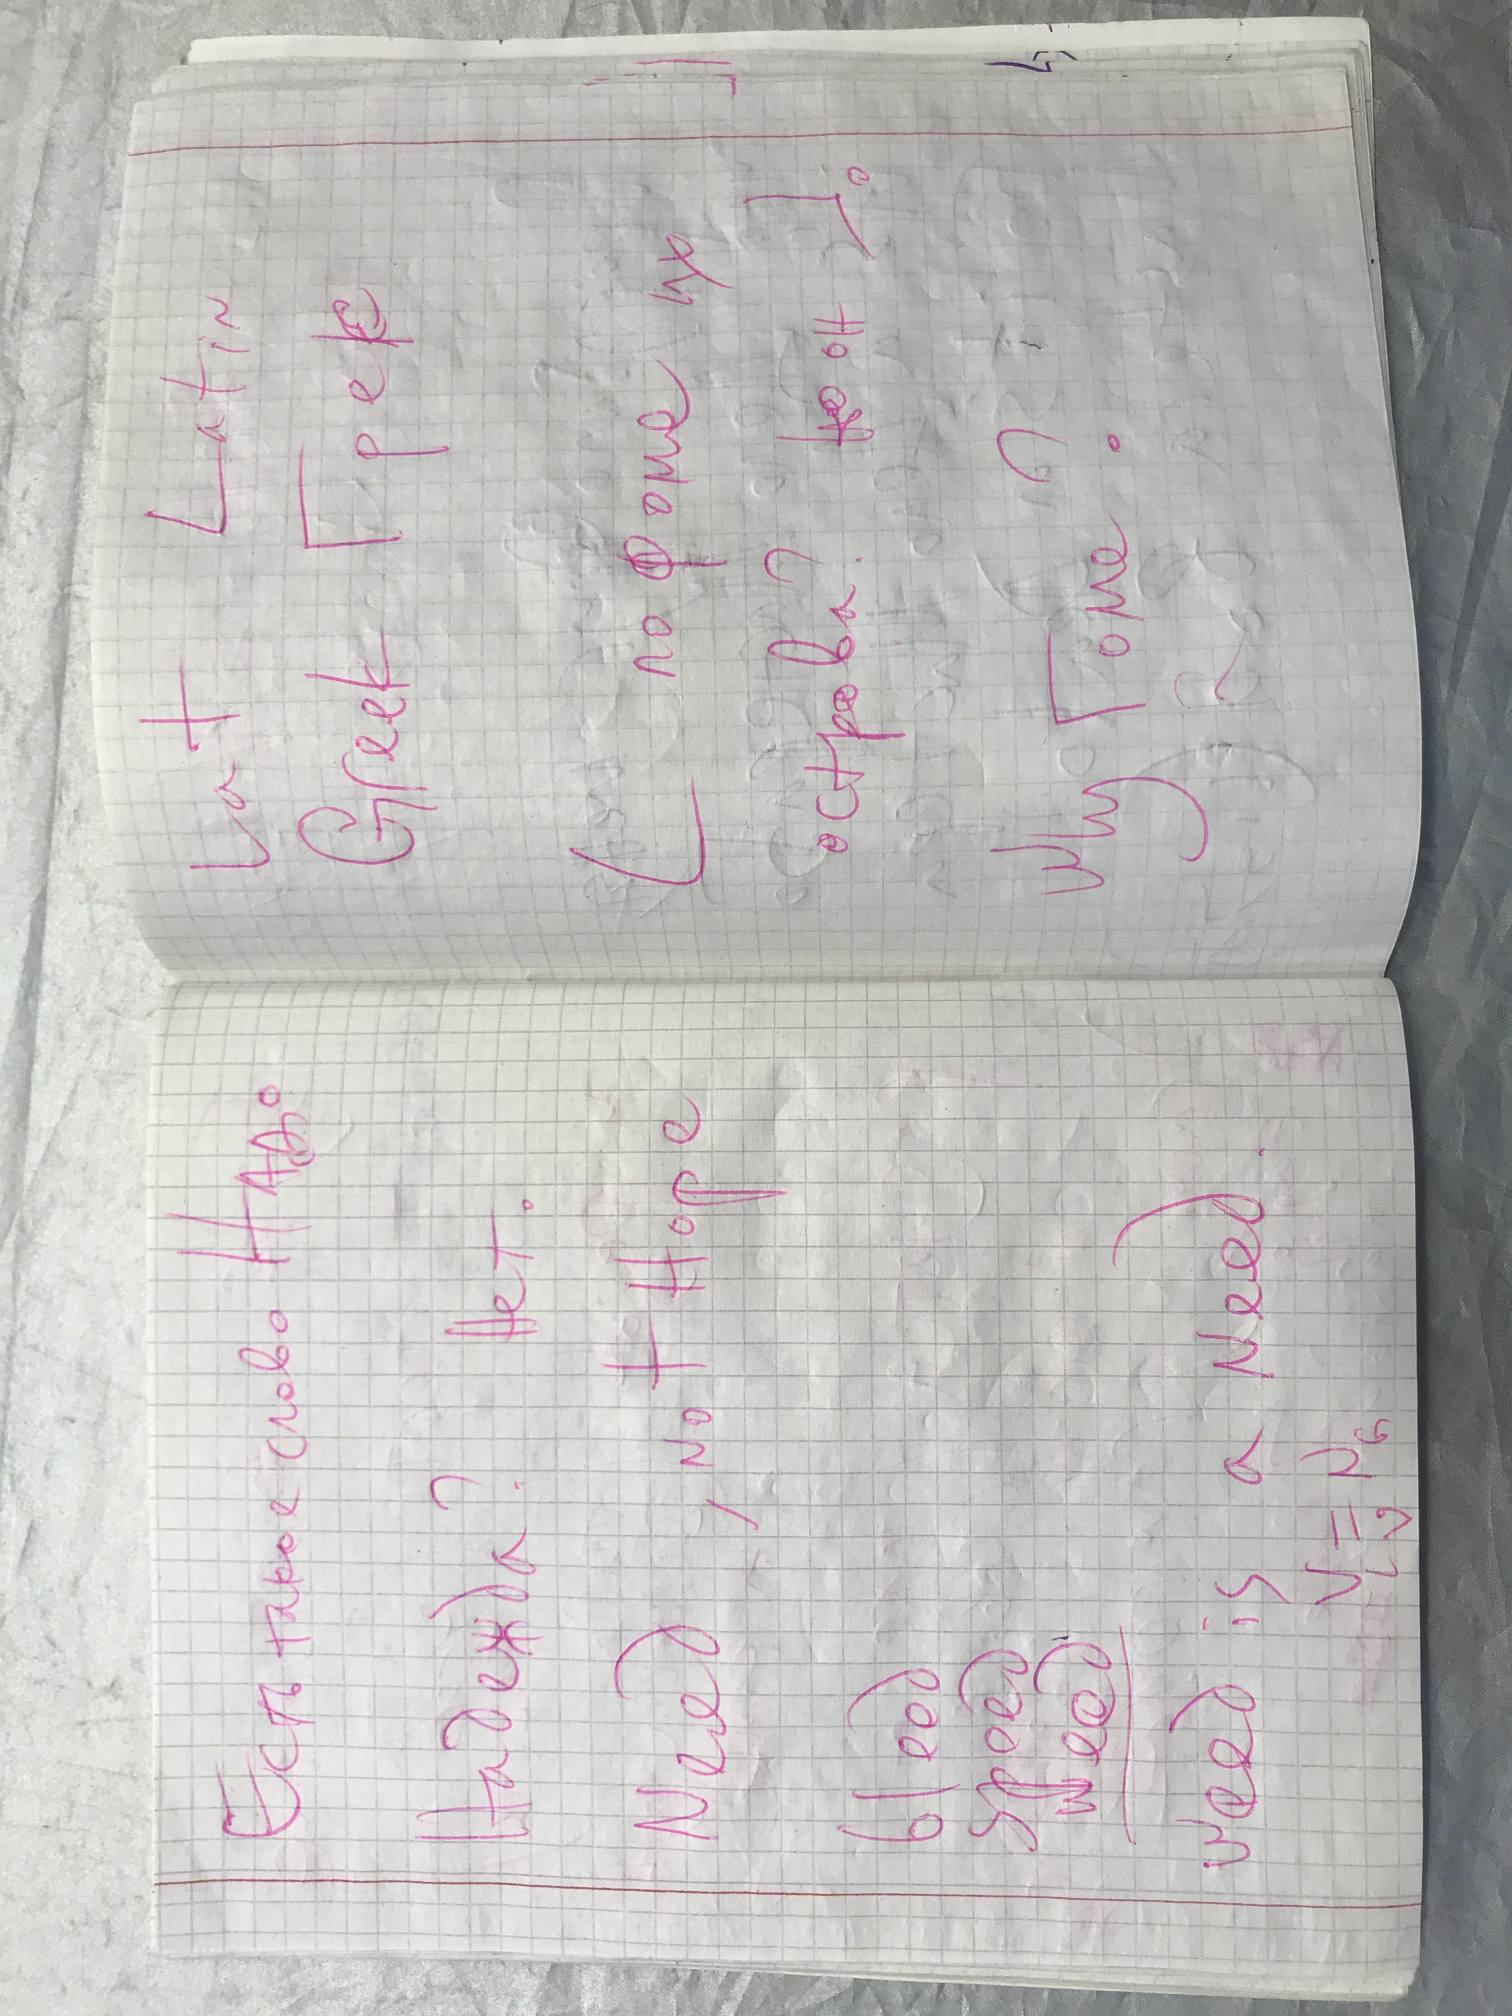 Есть такое слово НАДО
Надежда? Нет.
Need, not Hope
bleed
speed
weed
weed is a need.
Lat Latin
Greek Грек
L по форме их
острова?
Why Гоме?